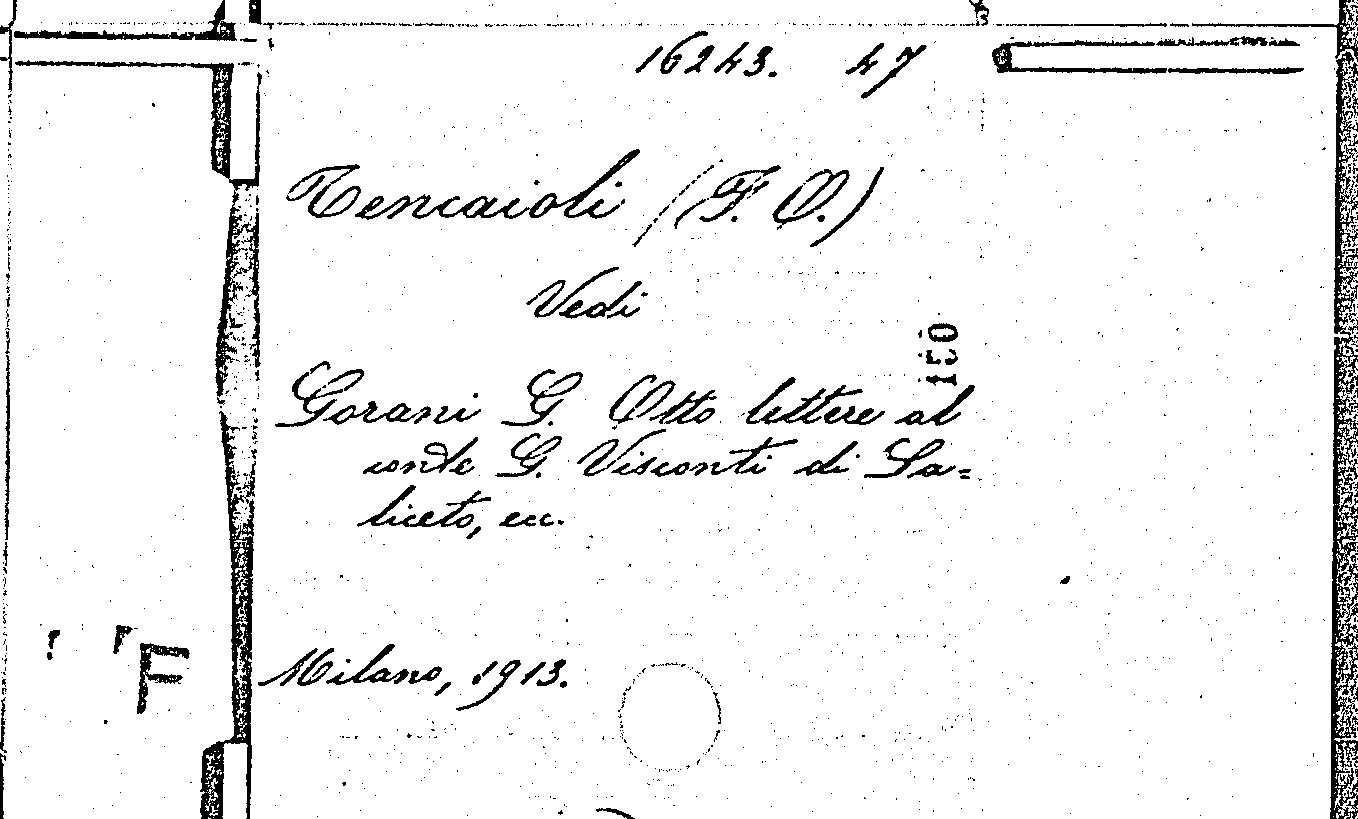 16243. 47
Tencaioli (F. O.)
Vedi
150
Gorani G. Otto lettere al
conte G. Visconti di Sa=
liceto, ecc.
F
Milano, 1913.